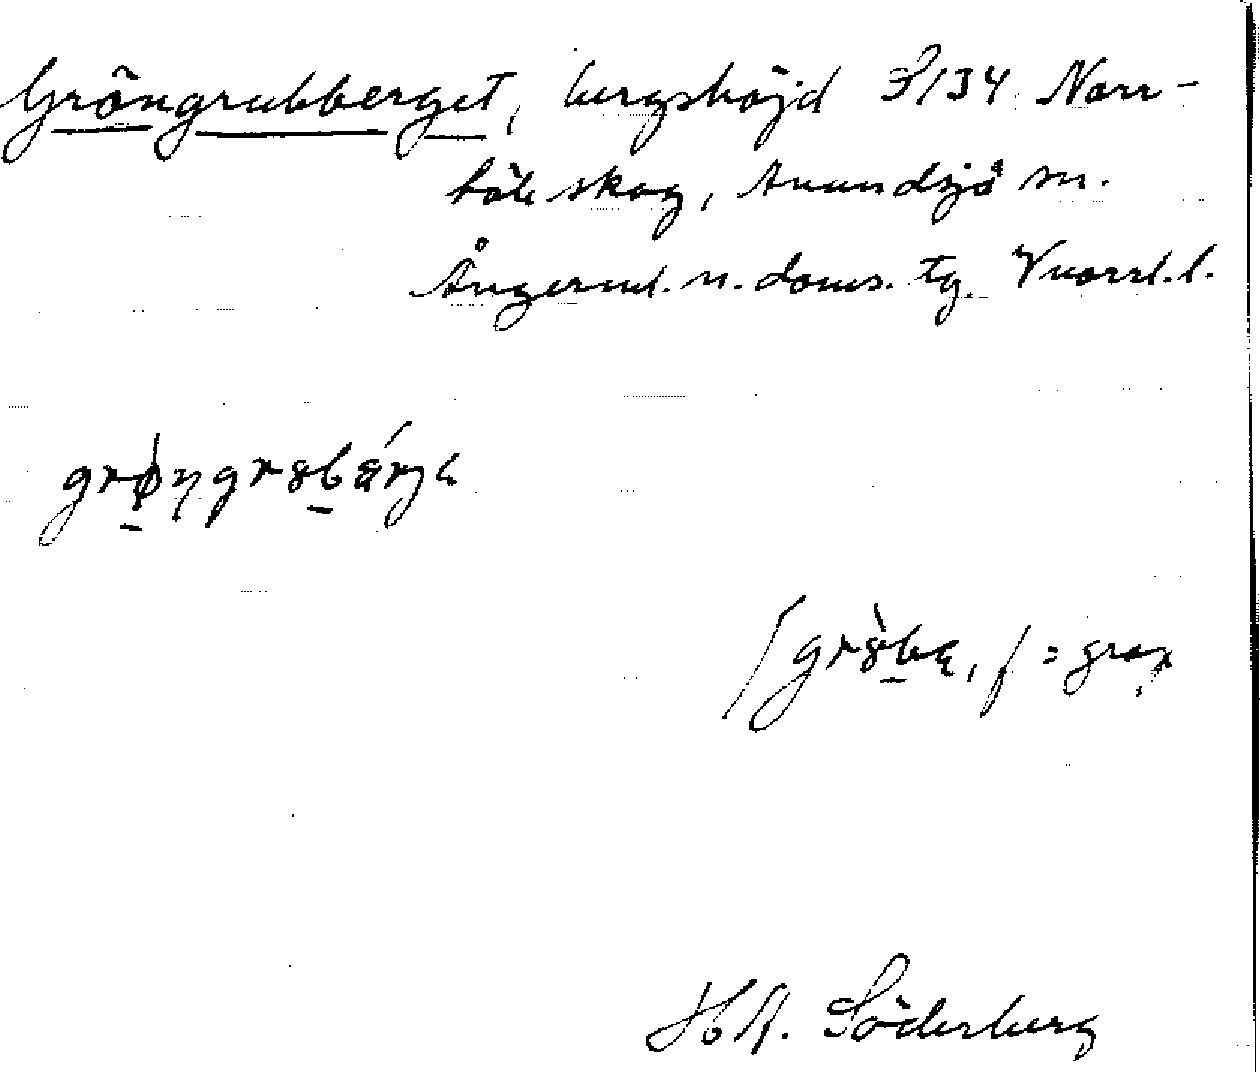 Gröngrubberget, bergshöjd S/134 Norr-
böle skog, Anundsjö sn.
Ångerml. n. doms. tg. Vnorrl. l.
grøŋgrubärje
H A. Söderberg